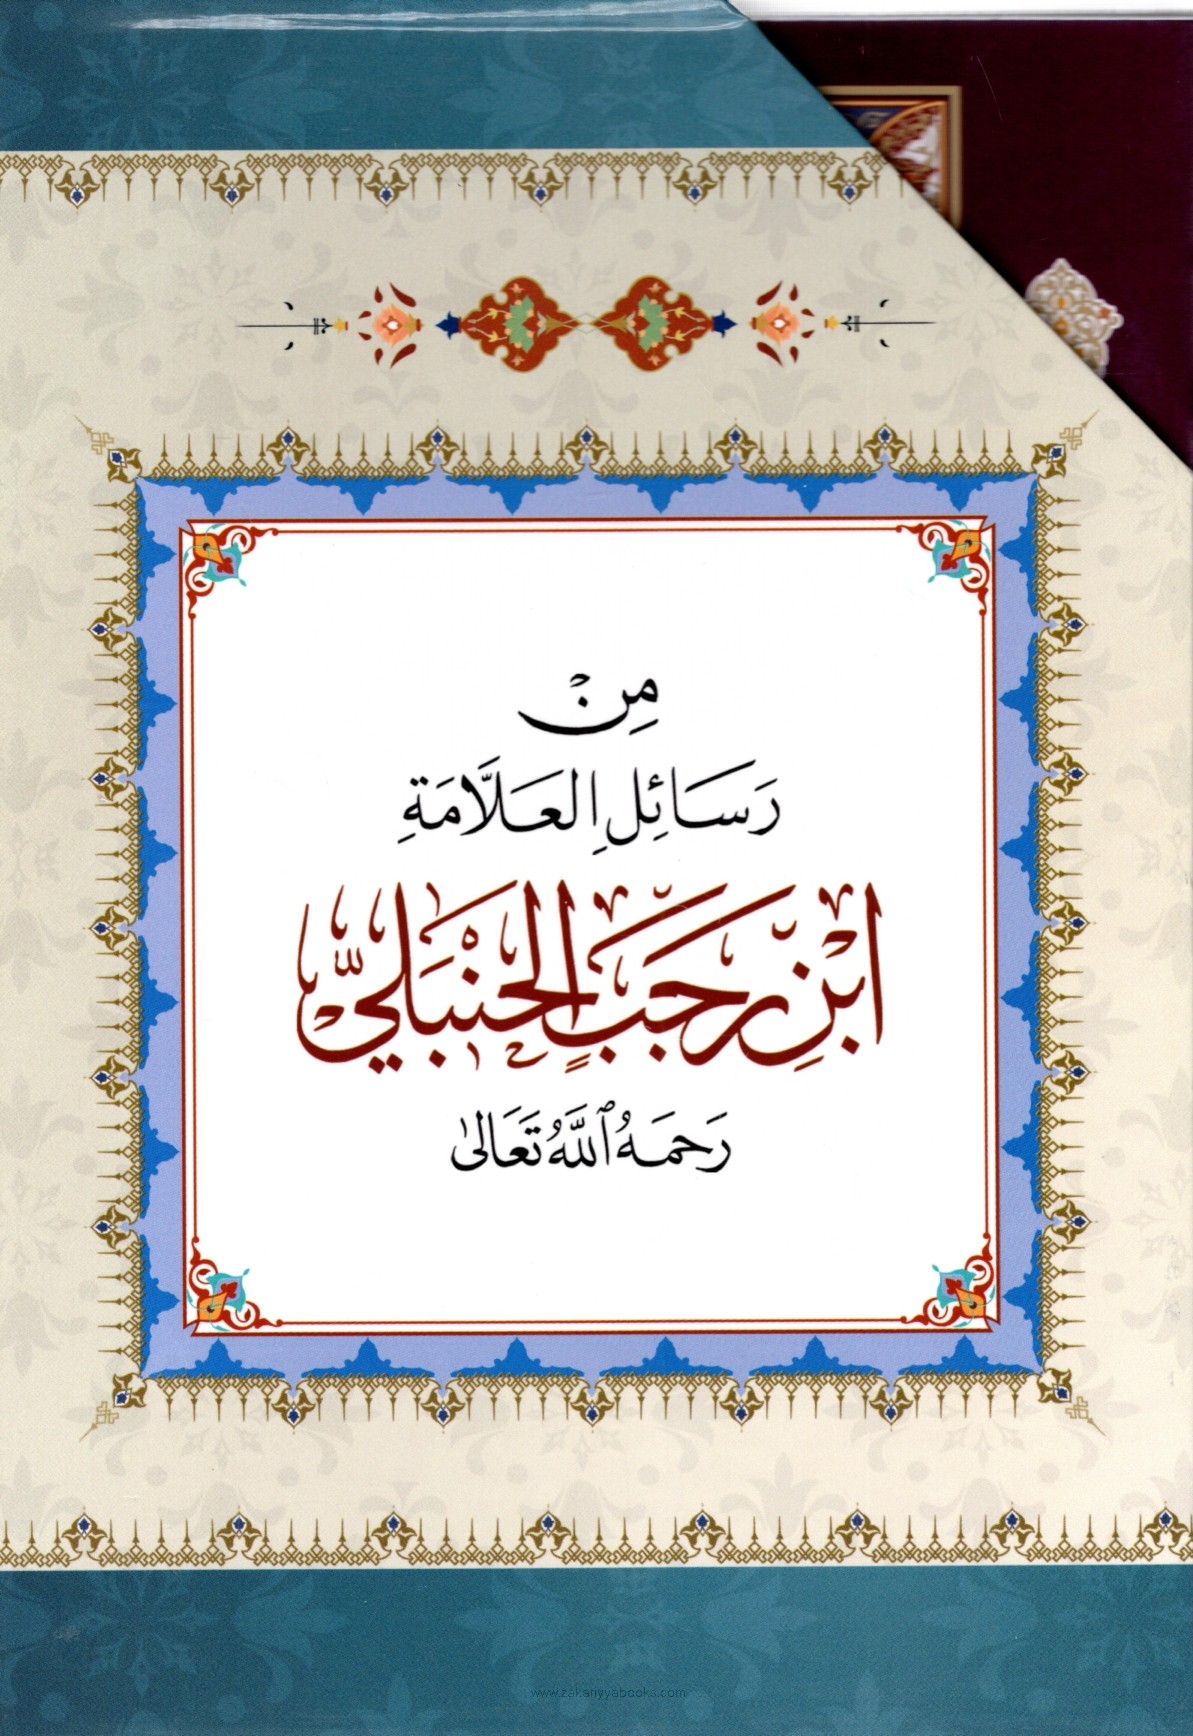 مِنْ
رَسَائِلِ العَلَّامَةِ
ابْنِ رَجَبٍ الحَنْبَلِيِّ
رَحِمَهُ ٱللَّهُ تَعَالىٰ
www.zakariyyabooks.com